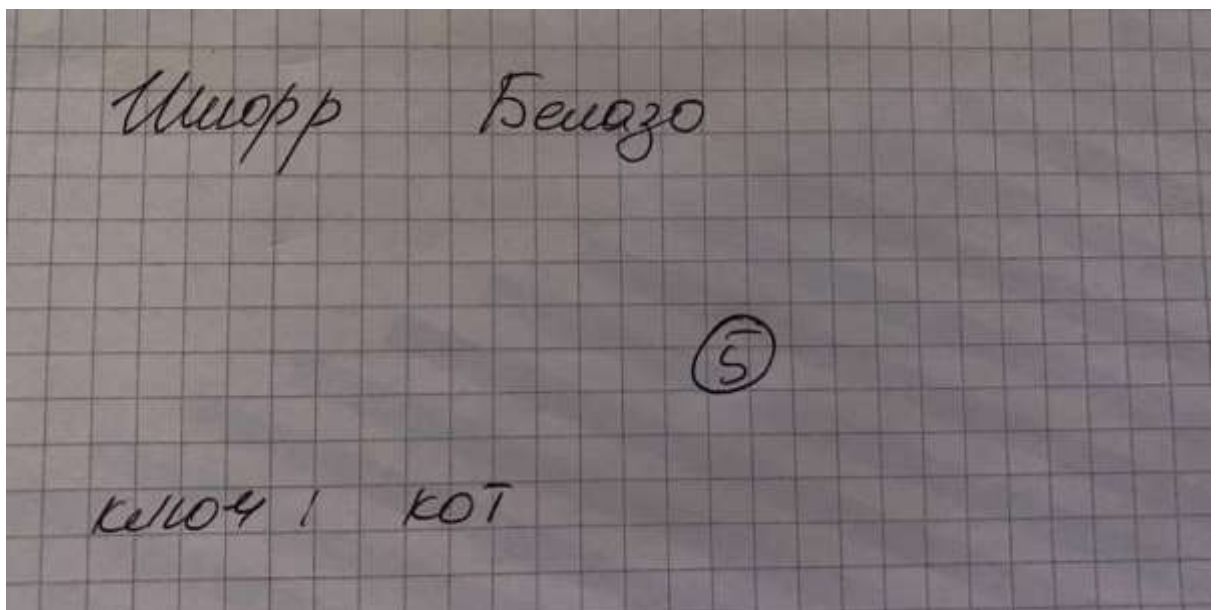 Шифр Белазо
5
ключ: кот